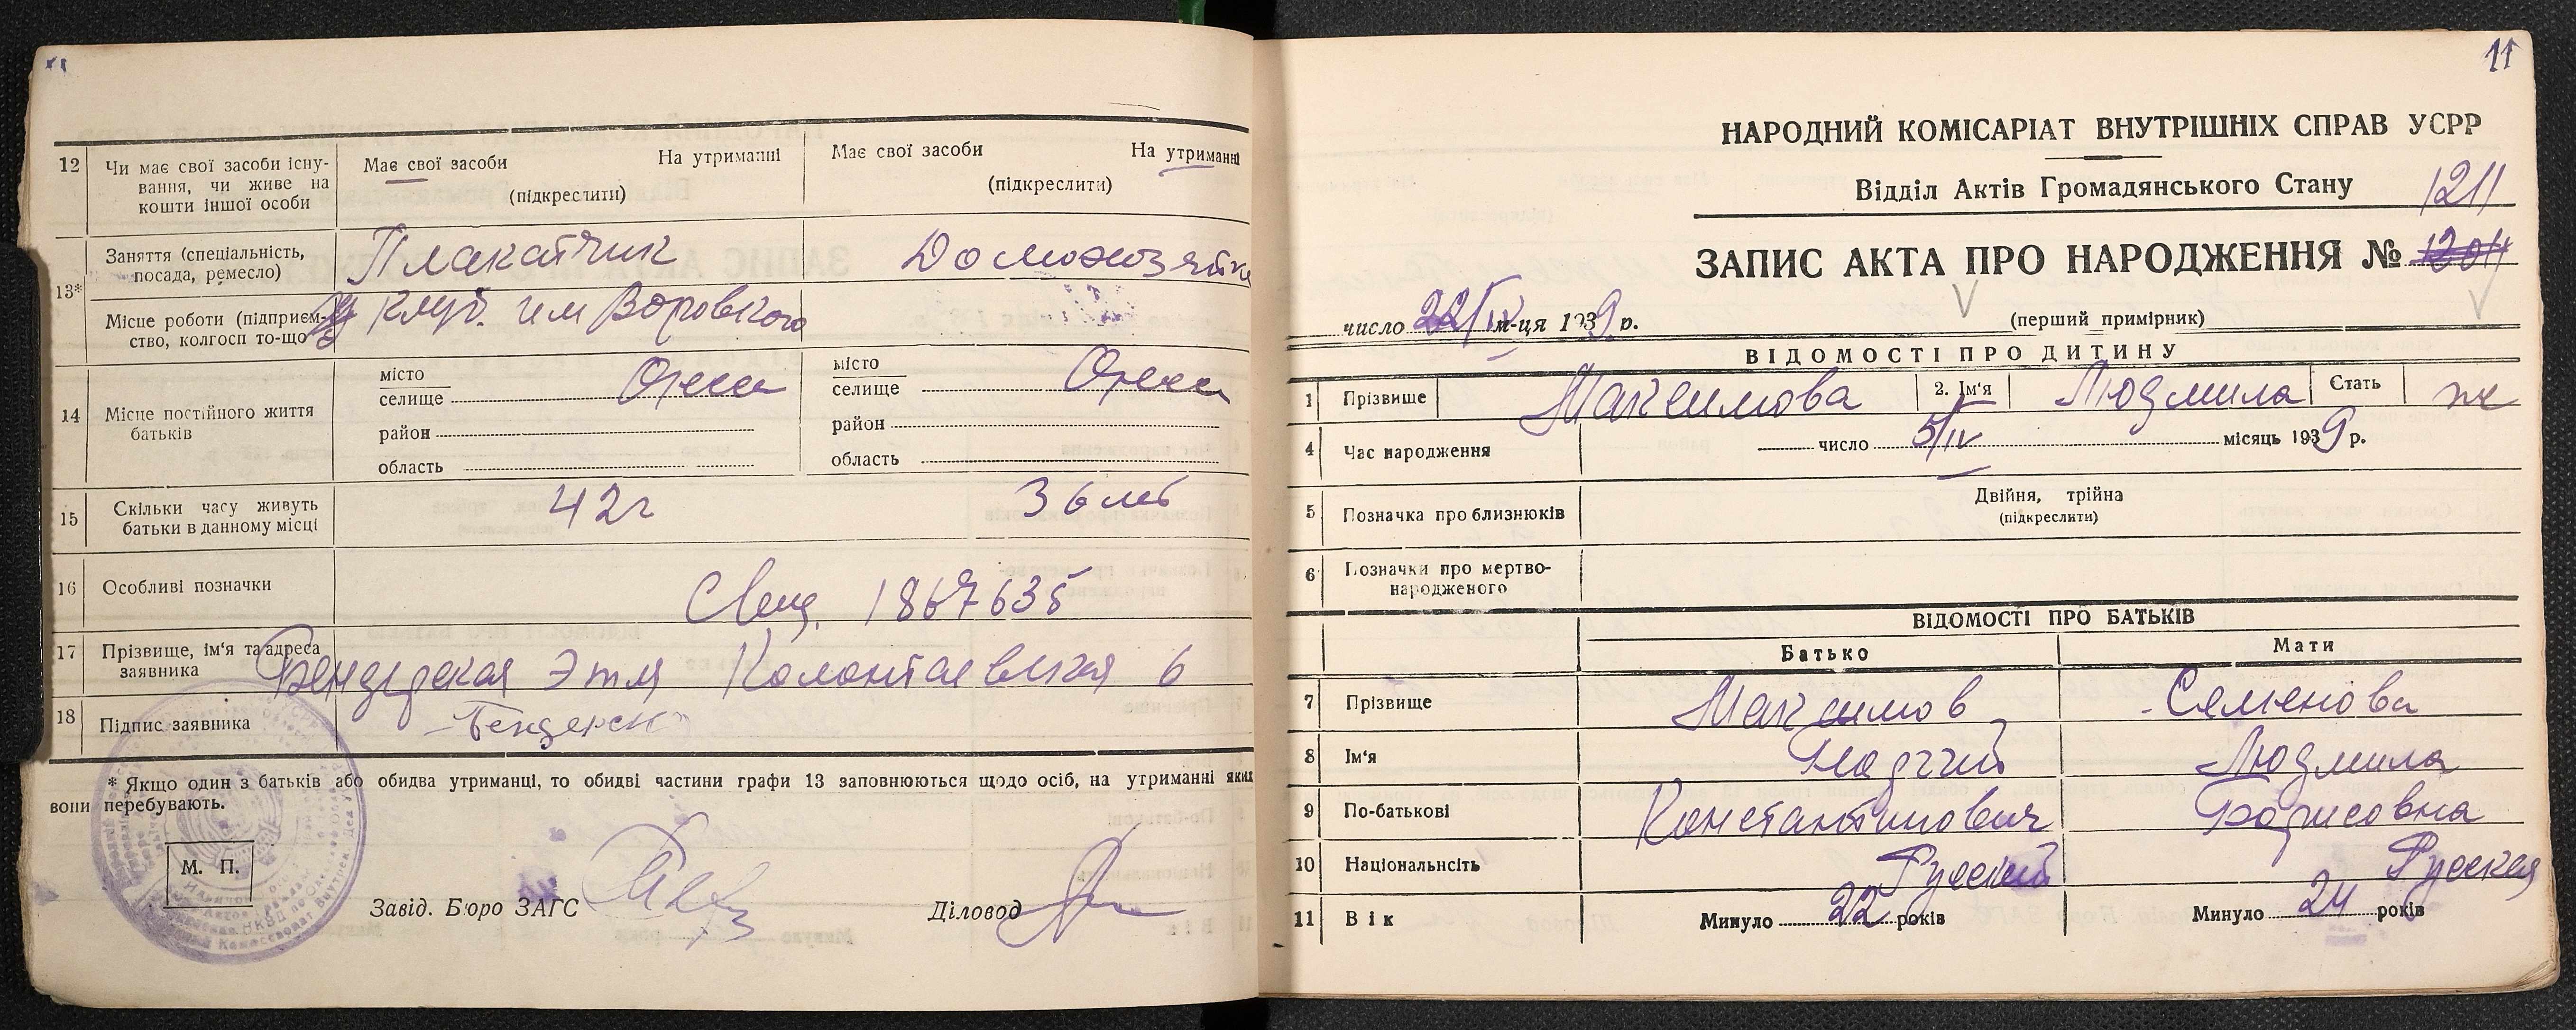 12 Чи має свої засоби існування, чи живе на кошти іншої особи
Має свої засоби На утриманні
(підкреслити)
Має свої засоби На утриманні
(підкреслити)
13* Заняття (спеціальність, посада, ремесло)
Плакатчик
Домохозяйка
Місце роботи (підприємство, колгосп то-що)
клуб. им Воровского
14 Місце постійного життя батьків
місто
селище Одесса
район
область
місто
селище Одесса
район
область
15 Скільки часу живуть батьки в данному місці
42г
3 6 лет
16 Особливі позначки
Свид. 1867635
17 Прізвище, ім'я та адреса заявника
Бендерская Этля Колонтаевская 6
18 Підпис заявника
* Якщо один з батьків або обидва утриманці, то обидві частини графи 13 заповнюються щодо осіб, на утриманні яких
вони перебувають.
М. П.
Завід. Бюро ЗАГС
Діловод
11
НАРОДНИЙ КОМІСАРІАТ ВНУТРІШНІХ СПРАВ УСРР
Відділ Актів Громадянського Стану
1211
ЗАПИС АКТА ПРО НАРОДЖЕННЯ №
число 22/IV м-ця 1939 р.
(перший примірник)
ВІДОМОСТІ ПРО ДИТИНУ
1 Прізвище Максимова 2. Ім'я Людмила Стать ж
4 Час народження число 5/IV місяць 1939 р.
5 Позначка про близнюків
Двійня, трійна
(підкреслити)
6 Позначки про мертвонародженого
ВІДОМОСТІ ПРО БАТЬКІВ
Батько Мати
7 Прізвище Максимов Семенова
8 Ім'я Людмила
9 По-батькові Константинович Борисовна
10 Національнсіть Русский Русская
11 Вік Минуло 22 років Минуло 24 років